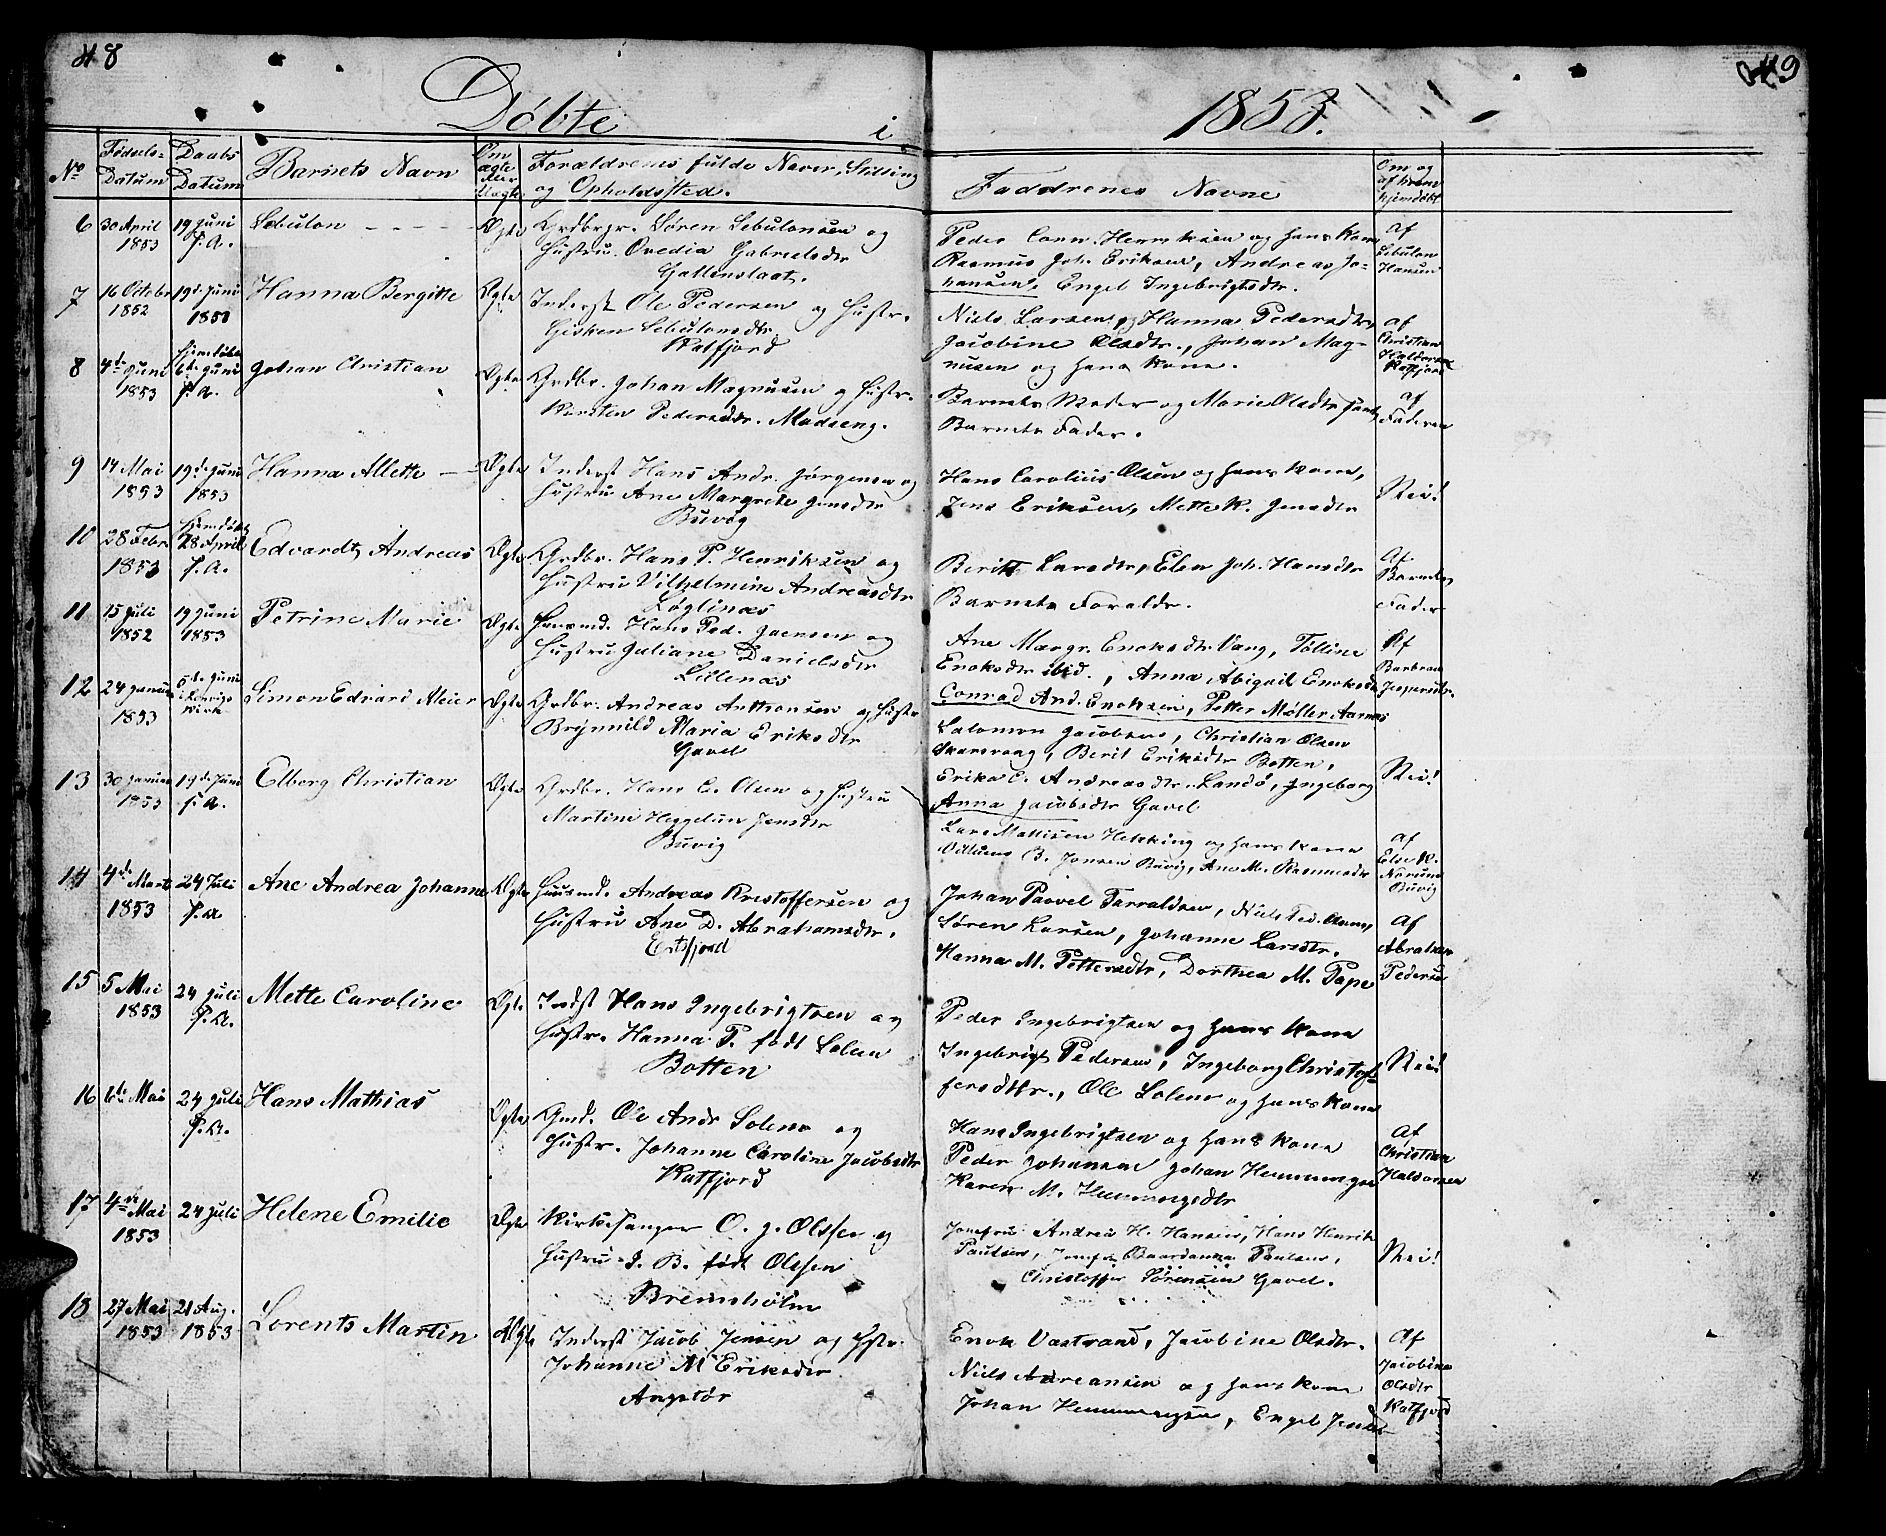 48
49
Døbte i 1853.
No
Fødsels-Datum
Daabs Datum
Barnets Navn
Om ægte eller Uægte
Forældrenes fulde Navne, Stilling
og Opholdssted.
Faddrenes Navne
Om og af hvem hjemdøbt
6 30 April 1853 19 Juni s. A. Sebulon Ægte Grdbrgr. Søren Sebulonsen og
Hustru Ovedia Gabrielsdtr
Peder Conr. Henriksen og hans Kone
Rasmus Joh. Eriksen, Andreas Jo-
hansen, Engel Ingebrigtsdtr.
af Sebulon Hansen
7 16 Octobr 1852 19de Juni 1853 Hanna Bergitte Ægte Inderst Ole Pedersen og Hustr.
Gisken Sebulonsdtr
Katfjord
Niels Larsen og Hanna Pedersdtr,
Jacobine Olsdtr., Johan Mag-
nusen og hans Kone.
af Christian Haldorsen Katfjord
8 4de Juni 1853 hjemdøbt 6te Juni s. A. Johan Christian Ægte Grdbr. Johan Magnusen og Hustr.
Kirsten Pedersdtr. Madseng.
Barnets Moder og Marie Olsdtr samt
Barnets Fader.
af Faderen
9 14 Mai 1853 19de Juni 1853 Hanna Allette Ægte Inderst Hans Andr. Jørgensen og
Hustru Ane Margrete Jensdtr
Buvig
Hans Carolius Olsen og hans Kone,
Jens Eriksen, Mette K. Jensdtr
Nei!
10 28 Febr 1853 hjemdøbt 28 April s. A. Edvardt Andreas Ægte Grdbr. Hans P. Henriksen og
Hustru Vilhelmine Andreasdtr
Løglinæs
Berith Larsdtr, Elen Joh. Hansdtr
Barnets Forældr.
Af Barnets Fader
11 15 Juli 1852 19 Juni 1853 Petrine Marie Ægte Huusmd. Hans Ped. Jensen og
Hustru Juliane Danielsdtr
Lillenæs
Ane Margr. Enoksdtr Vang, Tolline
Enoksdtr ibid., Anna Abigail Enoksdtr
Conrad And. Enoksen, Petter Møller Aarnæs
Af Barbroe Jespersdtr.
12 24 Januar 1853 5de Juni Simon Edvard Meier Ægte Grdbr. Andreas Anthonsen og Hustr
Brynnild Maria Eriksdtr
Gavel
Salomon Jacobsen, Christian Olsen
Skarsvaag, Berit Eriksdtr Botten,
Erika C. Andreasdtr. Sandø, Ingeborg
Anna Jacobsdtr Gavel
Nei!
13 30 Januar 1853 19de Juni s. A. Elberg Christian Ægte Grdbr. Hans C. Olsen og Hustru
Martine Heggelun Jensdtr
Buvig
Lars Mathisen Hekking og hans Kone
B. Jensen Buvig, Ane M. Rasmusdtr
af Else K. Buvig
14 4de Marts 1853 24 Juli s. A. Ane Andrea Johanne Ægte Huusmd. Andreas Kristoffersen og
Hustru Ane D. Abrahamsdtr.
Ertsfjord
Johan Paavel Tarraldsen, Niels Ped.
Søren Larsen, Johanne Larsdtr.
Hanna M. Pettersdtr, Dorthea M. Pape
Af Abraham Pedersen
15 5 Mai 1853 24 Juli s. A. Mette Caroline Ægte Indst Hans Ingebrigtsen og
Hustr. Hanna P. født Solem
Botten
Peder Ingebrigtsen og hans Kone
Ingebrigt Pedersen, Ingeborg Christof-
fersdtr., Ole Solem og hans Kone
Nei!
16 6te Mai 24 Juli s. A. Hans Mathias Ægte Gmd. Ole Andr Solem og
Hustr. Johanne Caroline Jacobsdtr
Katfjord
Hans Ingebrigtsen og hans Kone
Peder Johansen Johan Hemmingsen
Karen M. Hemmingsdtr
Af Christian Haldorsen
17 4de Mai 1853 24 Juli Helene Emilie Ægte Kirkesanger O. J. Olssen og
Hustru J. B. født Olssen
Bremsholm
Jomfru Andrea H. Hansen, Hans Henrik
Paulsen, Jomfr Baardanna Paulsen,
Christoffer Sørensen Gavel.
Nei!
18 27 Mai 1853 21 Aug. 1853 Lorents Martin Ægte Inderst Jacob Jensen og Hstr.
Johanne M Eriksdtr
Angstør
Enok Vastrand, Jacobine Olsdtr.
Niels Adreansen og hans Kone
Johan Hemmingsen, Engel Jensdtr
Af Jacobine Olsdtr Katfjord